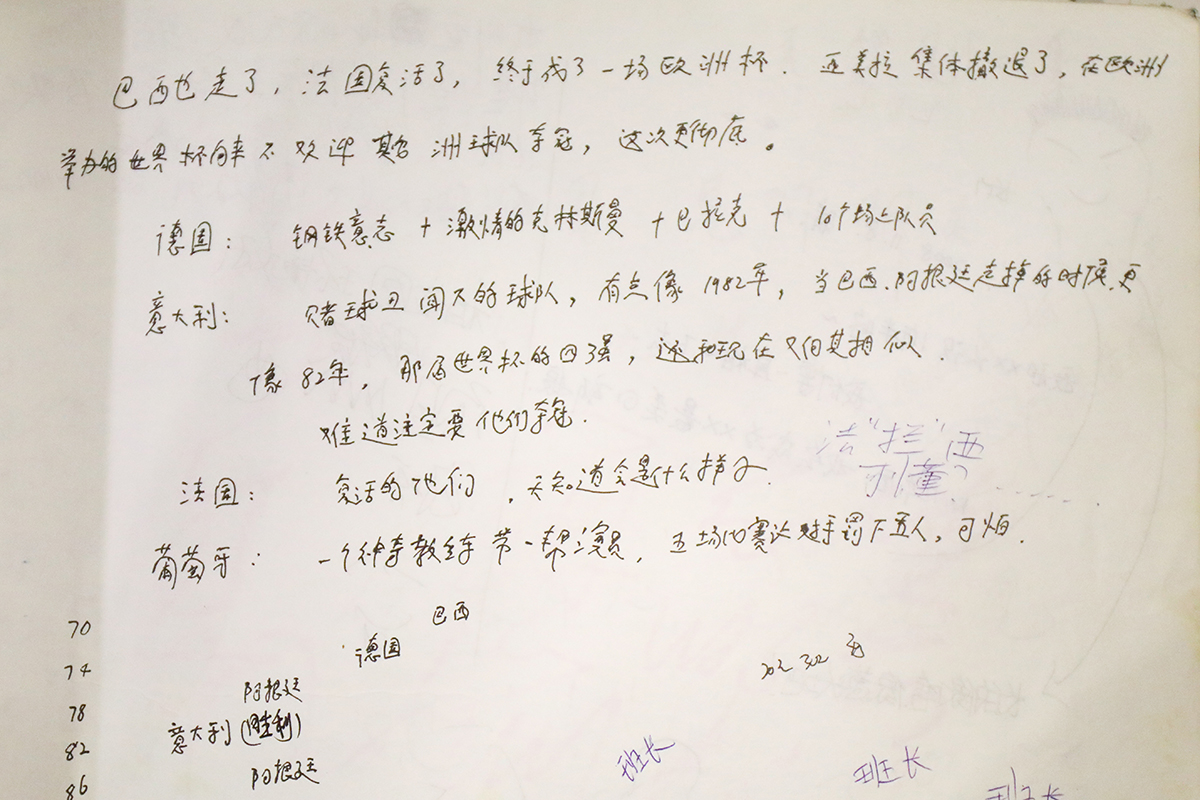 巴西也走了，法国复活了，终于成了一场欧洲杯．亚美拉集体撤退了，在欧洲
举办的世界杯向来不欢迎其它洲球队夺冠，这次更彻底。
德国： 钢铁意志 + 激情的克林斯曼 + 巴拉克 + 10个场上队员
意大利： 赌球丑闻下的球队，有点像1982年，当巴西、阿根廷走掉的时候，更
像82年，那届世界杯的四强，还和现在何其相似．
难道注定要他们夺冠．
法"拦"西
法国： 复活的他们，天知道会是什么样子．
可懂？......
葡萄牙： 一个神奇教练带一帮演员，五场比赛让对手罚下五人，可怕．
70 巴西
74 德国
78 阿根廷
82 意大利(胜利)
86 阿根廷
班长
班长
班长